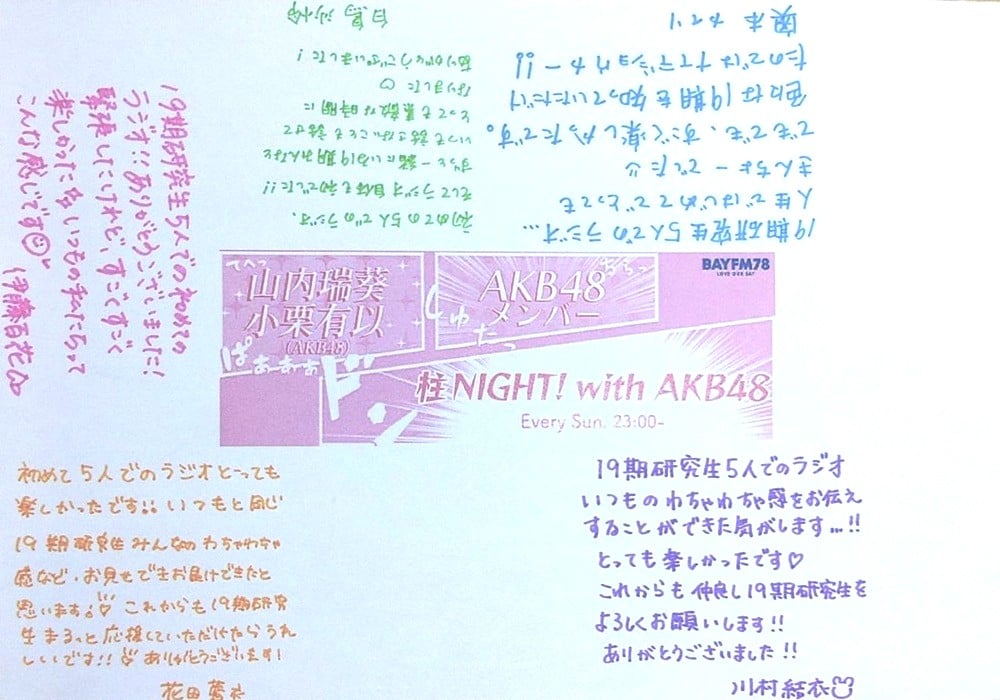 白鳥沙怜
初めての5人でのラジオ、
そしてラジオ自体も初でした!!
ずっと一緒にいる19期みんなと
いつも話さないことも話せて
とっても素敵な時間に
なりました♡
ありがとうございました!
奥本カイリ
19期研究生5人でのラジオ…
人生ではじめてでとっても
きんちょーでした
でもでも、すごく楽しかったです。
色んな19期を知っていただけ
たのではナイデショウカー!!
19期研究生5人での初めての
ラジオ!!ありがとうございました!
緊張したけれど、すごくすごく
楽しかった
こんな感じです
伊藤百花
てへっ
山内瑞葵
小栗有以
(AKB48)
ぱぁぁぁぁ
AKB48
メンバー
しゅたっ
BAYFM78
LOVE OUR BAY
柱NIGHT! with AKB48
Every Sun. 23:00-
初めて5人でのラジオとっても
楽しかったです!! いつもと同じ
19期研究生みんなのわちゃわちゃ
感など、お見せでき お届けできたと
思います!♡ これからも19期研究
生まるっと応援していただけたらうれ
しいです!!♡ ありがとうございます!
花田藍衣
19期研究生5人でのラジオ
いつものわちゃわちゃ感をお伝え
することができた気がします...!!
とっても楽しかったです♡
これからも仲良し19期研究生を
よろしくお願いします!!
ありがとうございました!!
川村結衣